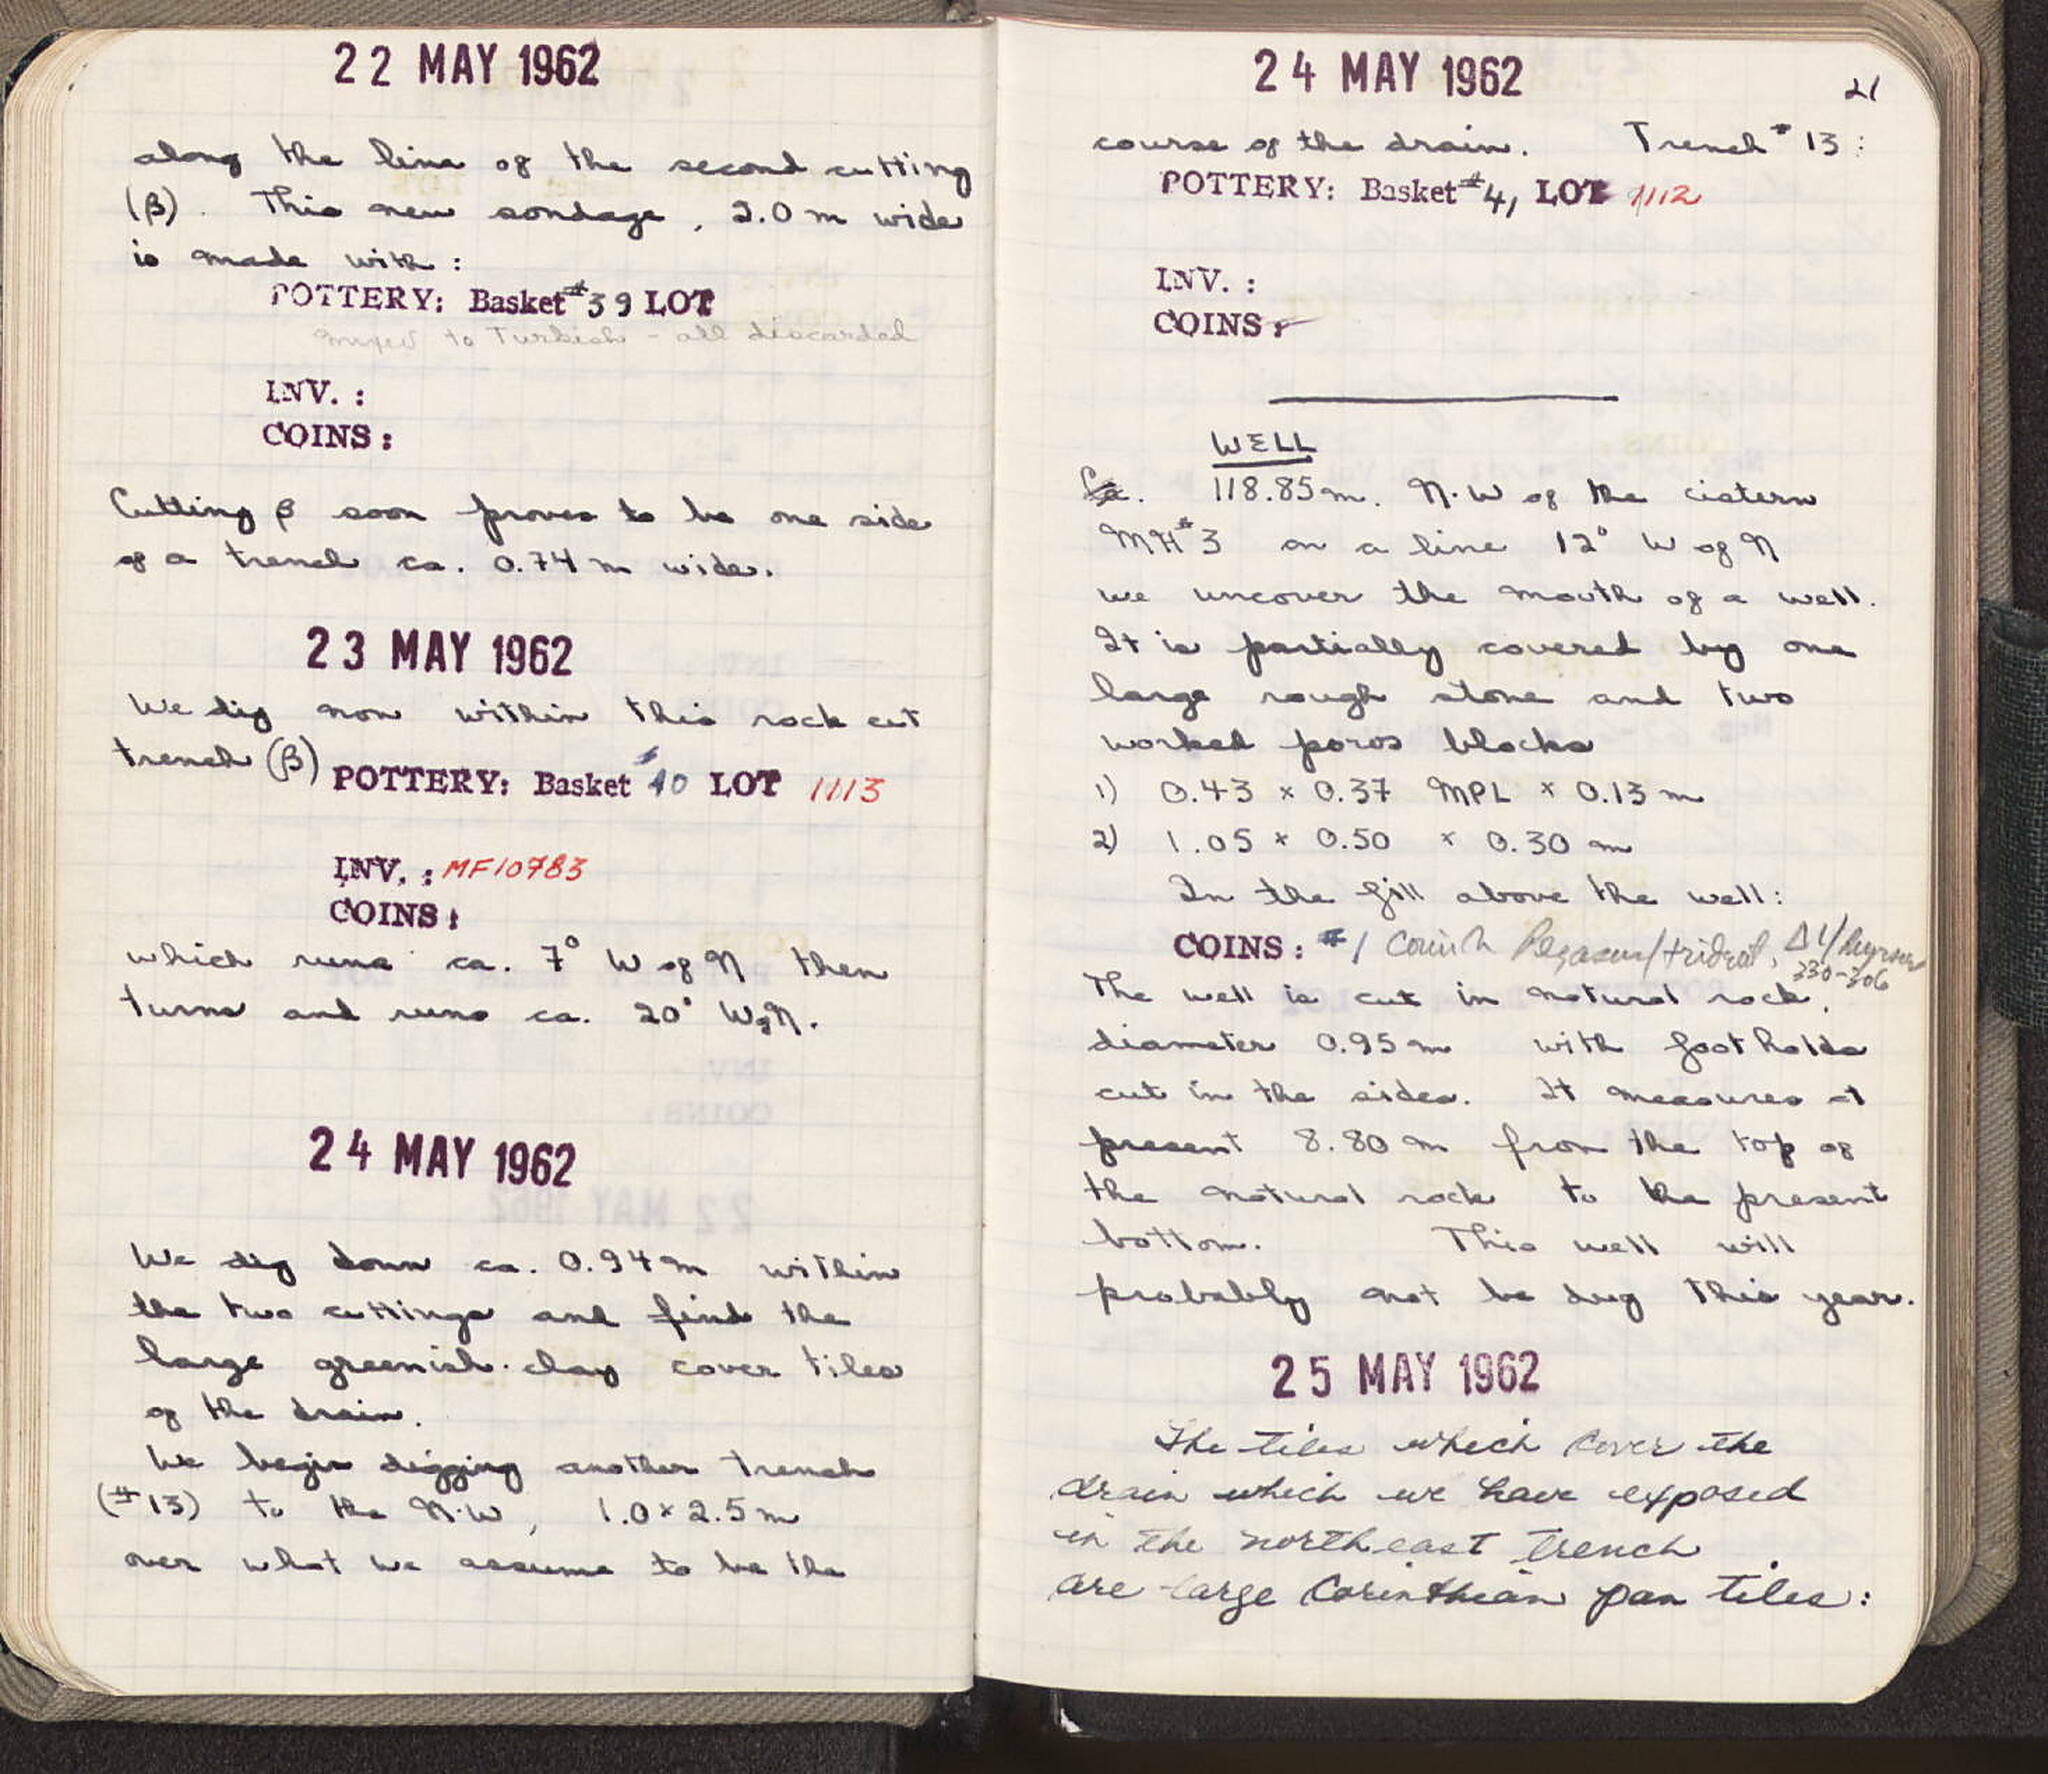 22 MAY 1962
along the line of the second cutting
(β). This new sondage, 2.0 m wide
is made with:
POTTERY: Basket #39 LOT
mixed to Turkish - all discarded
INV. :
COINS:
Cutting β soon proves to be one side
of a trench ca. 0.74 m wide.
23 MAY 1962
We dig now within this rock cut
trench (β)
POTTERY: Basket #40 LOT 1113
INV. : MF10783
COINS:
which runs ca. 7° W of N then
turns and runs ca. 20° W of N.
24 MAY 1962
We dig down ca. 0.94 m within
the two cuttings and find the
large greenish clay cover tiles
of the drain.
We begin digging another trench
(#13) to the N.W, 1.0 x 2.5 m
over what we assume to be the
24 MAY 1962
21
course of the drain. Trench #13:
POTTERY: Basket #41 LOT 1112
INV. :
COINS:
WELL
Ca. 118.85 m. N.W of the cistern
MH #3 on a line 12° W of N
we uncover the mouth of a well.
It is partially covered by one
large rough stone and two
worked poros blocks
1) 0.43 x 0.37 MPL x 0.13 m
2) 1.05 x 0.50 x 0.30 m
In the fill above the well:
COINS: #1 Corinth Pegasus/trident, Δ1/
330-306
The well is cut in natural rock,
diameter 0.95 m with footholds
cut in the sides. It measures at
present 8.80 m from the top of
the natural rock to the present
bottom. This well will
probably not be dug this year.
25 MAY 1962
The tiles which cover the
drain which we have exposed
in the northeast trench
are large Corinthian pan tiles: